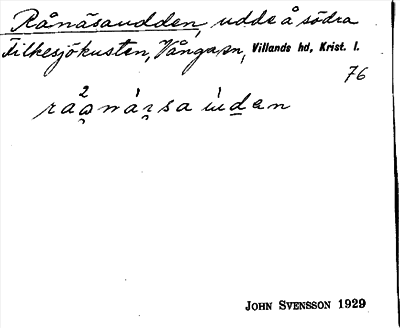 Rånäsaudden, udde å södra
Filkesjökusten, Vånga sn, Villands hd, Krist. l.
76
John Svensson 1929